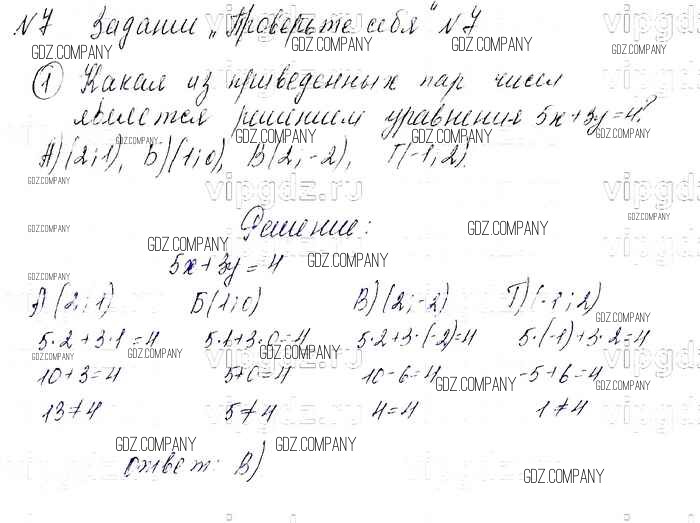 №7 Задании „Проверьте себя" №7
① Какая из приведенных пар чисел
является решением уравнения 5x+3y=4?
А) (2;1), Б) (1;0), В(2,-2), Г(-1,2).
Решение:
5x+3y=4
А) (2;1) Б(1;0) В)(2;-2) Г)(-1;2)
5·2+3·1=4 5·1+3·0=4 5·2+3·(-2)=4 5·(-1)+3·2=4
10+3=4 5+0=4 10-6=4 -5+6=4
13≠4 5≠4 4=4 1≠4
ответ: В)
vipgdz.ru
GDZ.COMPANY